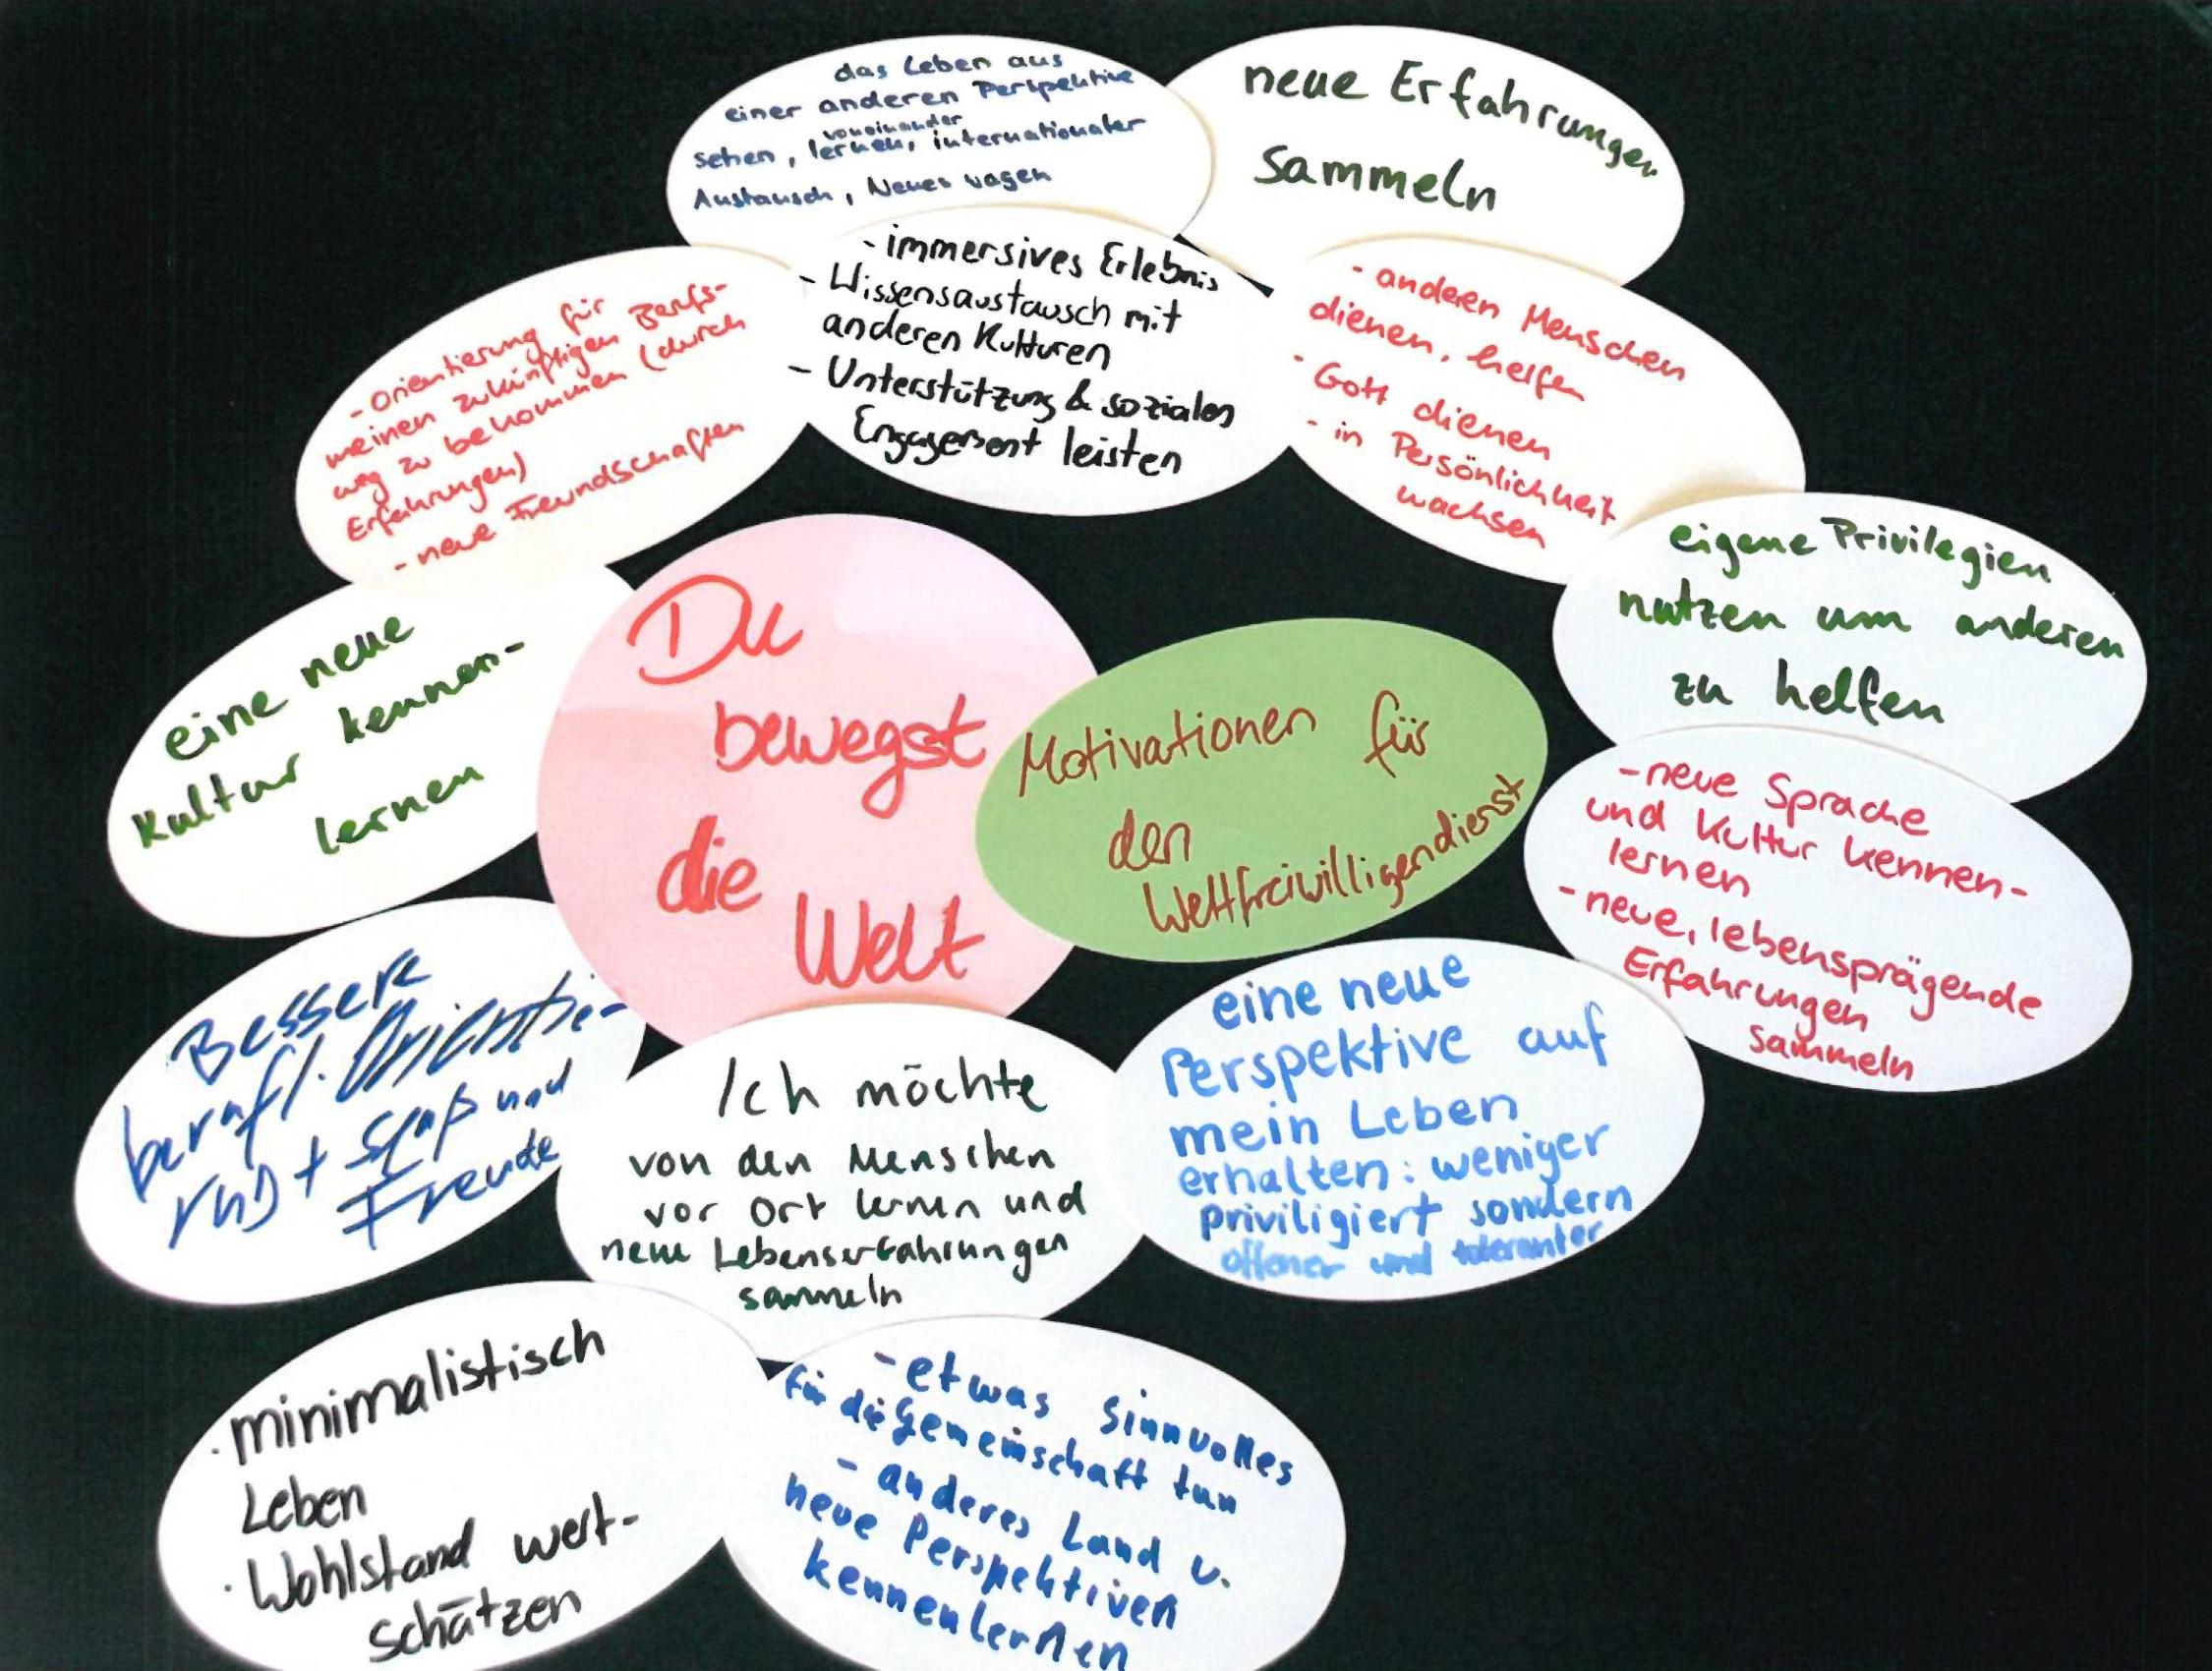 das Leben aus
einer anderen Perspektive
voneinander
sehen, lernen, internationaler
Austausch, Neues wagen
neue Erfahrungen
sammeln
- immersives Erlebnis
- Wissensaustausch mit
anderen Kulturen
- Unterstützung & soziales
Engagement leisten
- anderen Menschen
dienen, helfen
- Gott dienen
- in Persönlichkeit
wachsen
- Orientierung für
meinen zukünftigen Berufs-
weg zu bekommen (durch
Erfahrungen)
- neue Freundschaften
eigene Privilegien
nutzen um anderen
zu helfen
eine neue
Kultur kennen-
lernen
Du
bewegst
die
Welt
Motivationen für
den
Weltfreiwilligendienst
- neue Sprache
und Kultur kennen-
lernen
- neue, lebensprägende
Erfahrungen
sammeln
Bessere
berufl. Orientie-
rung + Spaß und
Freude
Ich möchte
von den Menschen
vor Ort lernen und
neue Lebenserfahrungen
sammeln
eine neue
Perspektive auf
mein Leben
erhalten: weniger
priviligiert sondern
offener und toleranter
· minimalistisch
Leben
· Wohlstand wert-
schätzen
- etwas Sinnvolles
für die Gemeinschaft tun
- anderes Land u.
neue Perspektiven
kennenlernen